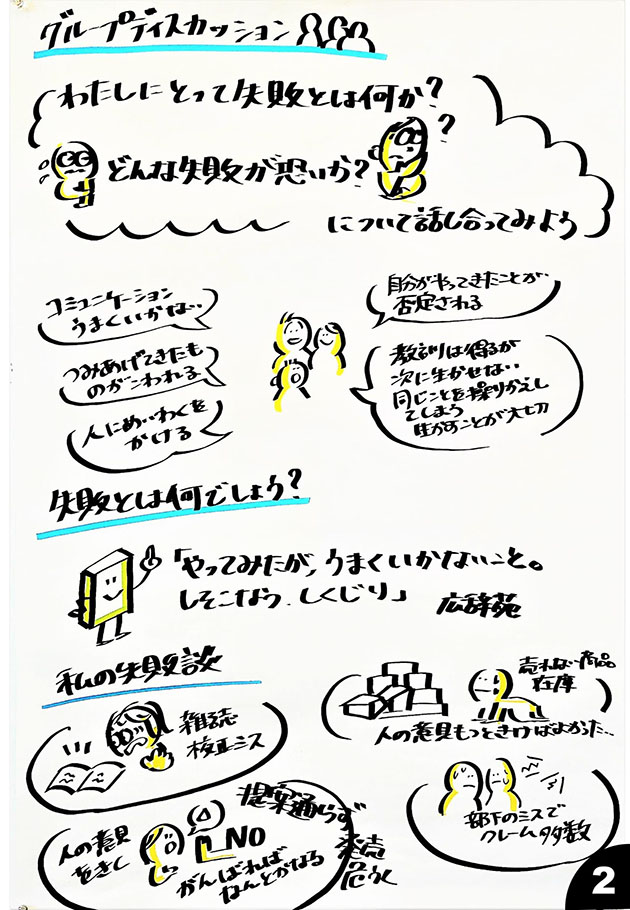 グループディスカッション
わたしにとって失敗とは何か?
どんな失敗が恐いか?
?
について話し合ってみよう
コミュニケーション
うまくいかない‥
つみあげてきたも
のがこわれる
人にめいわくを
かける
自分がやってきたことが‥
否定される
教訓は得るが
次に生かせない
同じことを繰りかえし
てしまう
生かすことが大切
失敗とは何でしょう?
「やってみたが、うまくいかないこと。
しそこなう.しくじり」
広辞苑
私の失敗談
雑誌
校正ミス
売れない商品
在庫
人の意見もっときけばよかった‥
人の意見
をきく
提案通らず
NO
がんばれば
なんとかなる
部下のミスで
クレーム多数
2